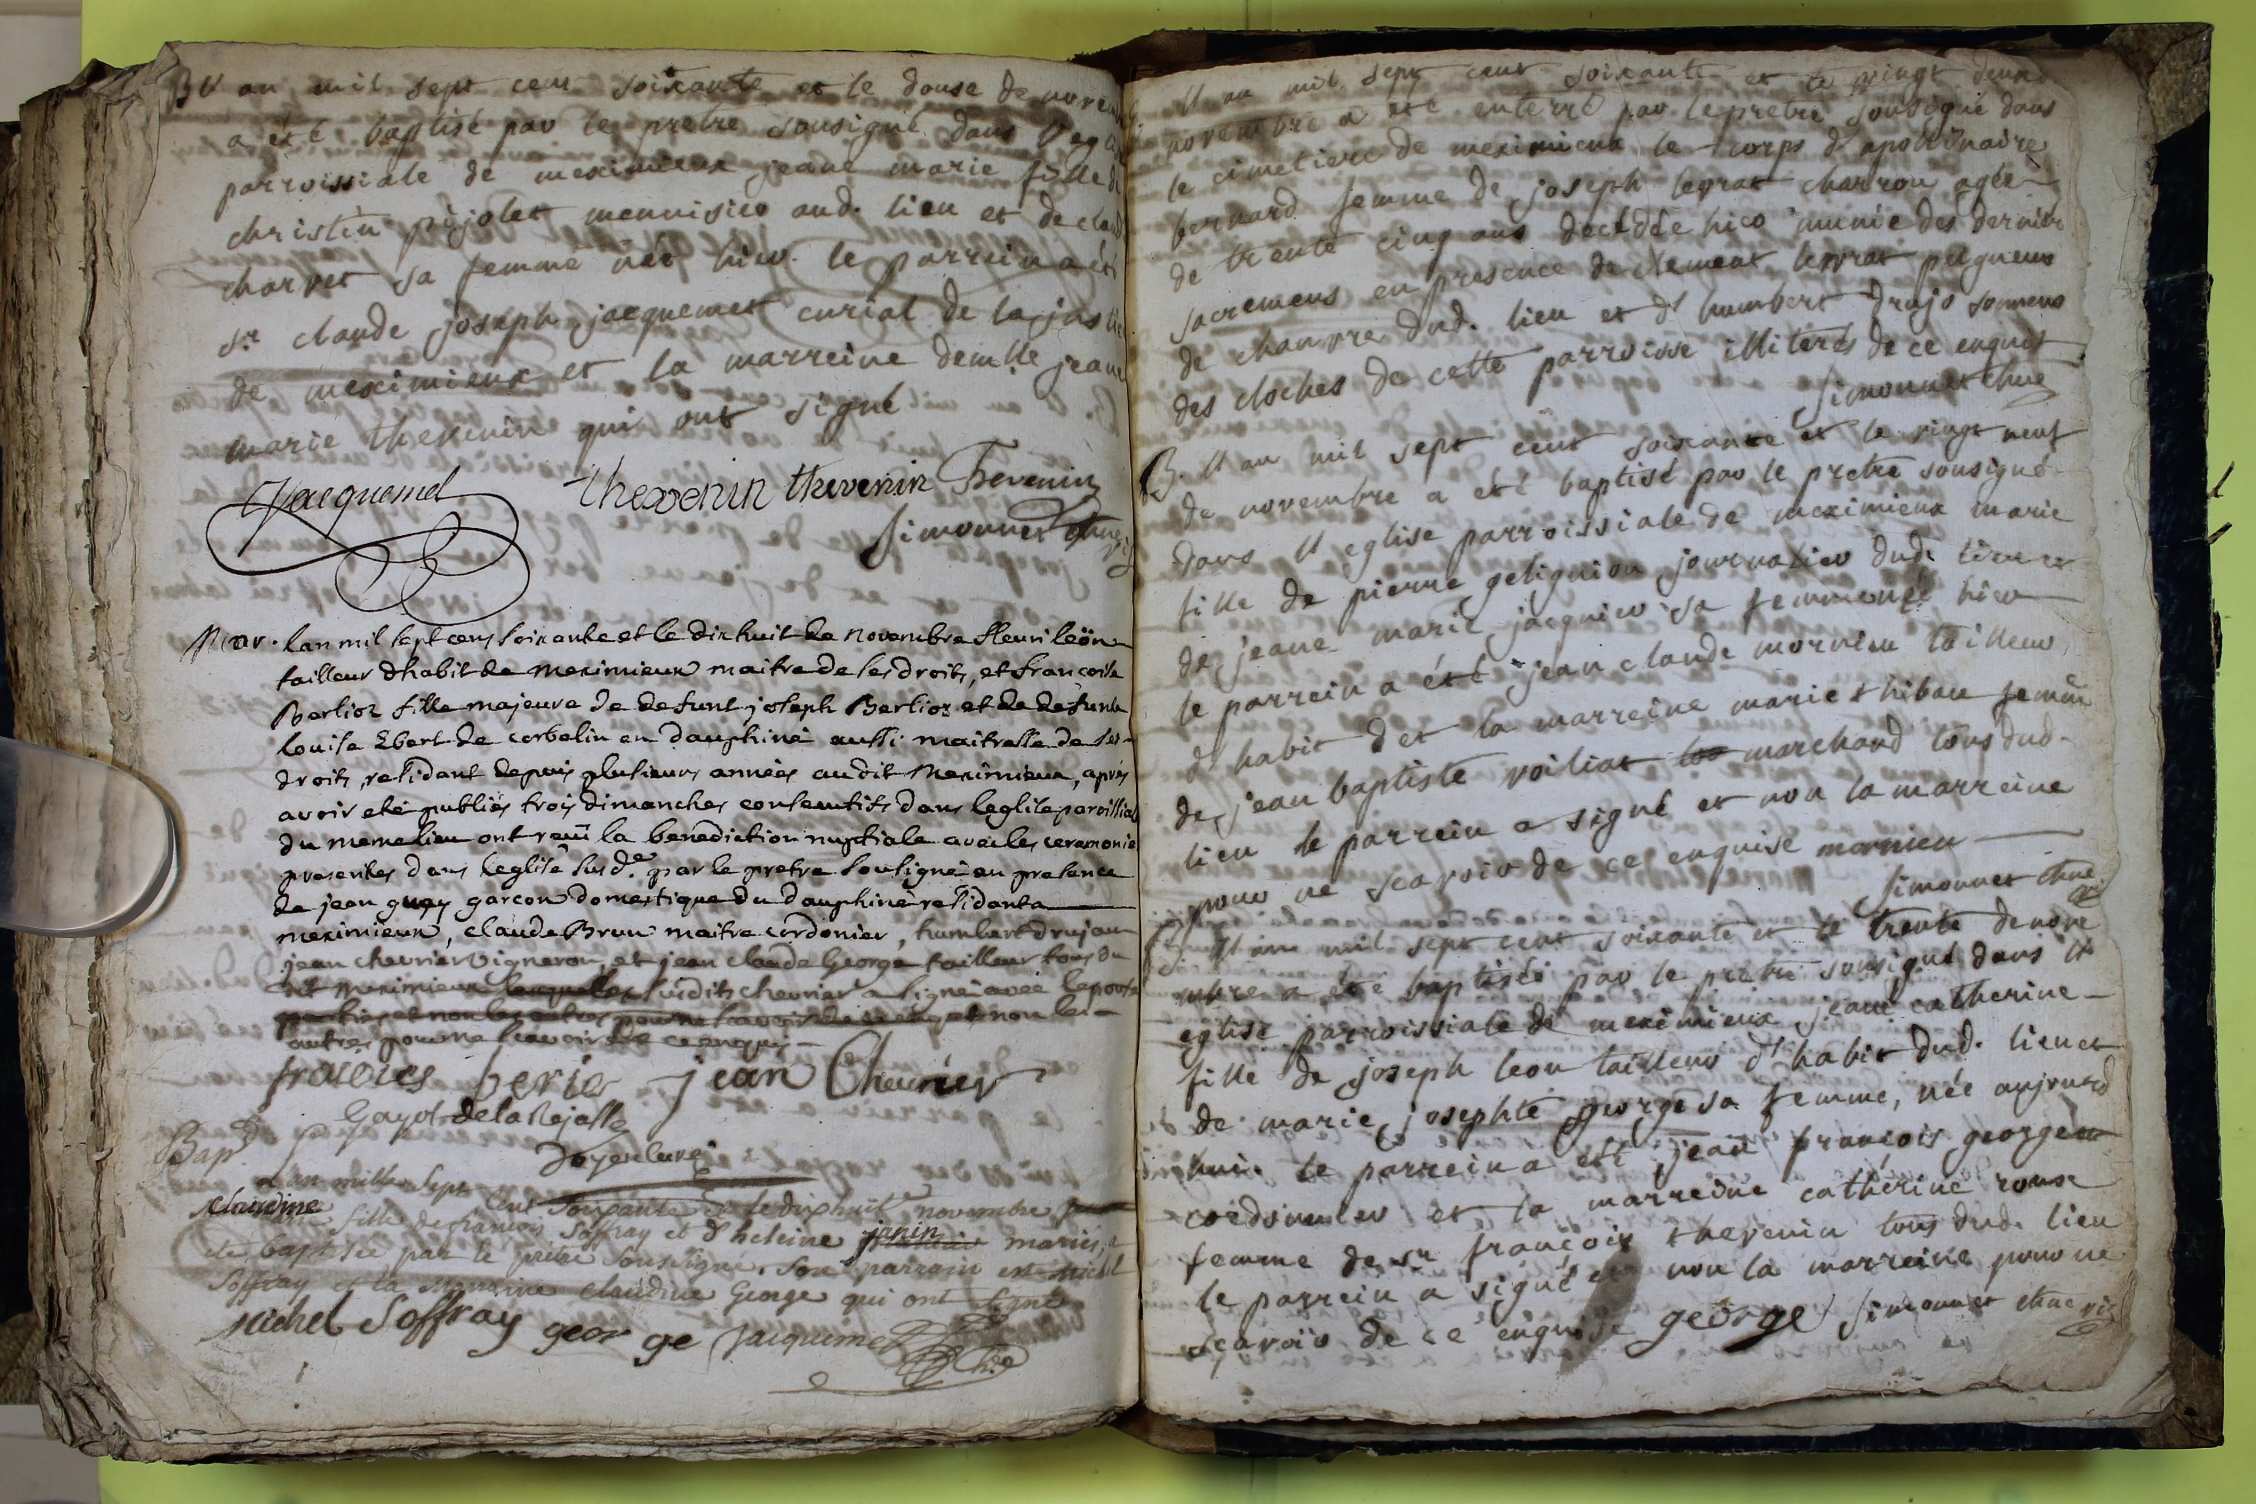 B l'an mil sept cent soixante et le douse de novem
a été baptisé par le pretre sousigné dans l'eglise
parroissiale de meximieux jeane marie fille de
christin pijolet menuisier aud. lieu et de claud
charvet sa femme née hier. le parrein a été
Sr. claude joseph jacquemet curial de la justice
de meximieux et la marreine demlle jeane
marie thevenin qui ont signé
Jacquemet thevenin thevenin Thevenin
Simonnet chne
Mar. lan mil sept cens soixante et le dix huit de novembre fleuri leön
tailleur d'habit de meximieux maitre de ses droits, et francoise
Berlioz fille majeure de defunt joseph Berlioz et de defunte
louise Ebert de corbelin en dauphiné aussi maitresse de ses
droits, residant depuis plusieurs années audit meximieux, aprés
avoir eté publiés trois dimanches consecutifs dans leglise paroissial
du meme lieu ont recu la benediction nuptiale avec les ceremonie
presentes dans leglise susde. par le pretre sousigné en presence
de jean guay garcon domestique du dauphiné residant a
meximieux, claude Brun maitre cordonier, humbert drujon
jean chevrier vigneron, et jean claude George tailleur tous du
dit meximieux lesquelles susdits chevrier a signé avec lepouse
et non les
autres pour ne scavoir de ce enquis
jean Chevrier
Gayot de la Rejasse
Doyen curé
Bapt
l'an mille sept cent soixante et le dix huit novembre
claudine fille de francois Soffray et d'heleine janin mariés, a
ete baptisée par le prêtre soussigné. Son parrain est michel
Soffray et la marraine claudine George qui ont signé
michel Soffray george Jacquemet
Chne
l'an mil sept cent soixante et le vingt deux
novembre a été enterré par le pretre sousigné dans
le cimetiere de meximieux le corps d'apollinaire
bernard femme de joseph levrat charron agée
de trente cinq ans decedée hier munie des dernier
sacremens en presence de clement levrat peigneur
de chanvre dud. lieu et d'humbert drujo sonneur
des cloches de cette parroisse illiterés de ce enquis
Simonnet chne
B. l'an mil sept cent soixante et le vingt neuf
de novembre a été baptisé par le pretre sousigné
dans l'eglise parroissiale de meximieux marie
fille de pierre geliquion journalier dud. lieu et
de jeane marie jacquier sa femme née hier
le parrein a été jean claude mornieu tailleur
d'habit et la marreine marie thibau femme
de jean baptiste voiliat marchand tous dud.
lieu le parrein a signé et non la marreine
pour ne scavoir de ce enquise mornieu
Simonnet chne
l'an mil sept cent soixante et le trente de nove
mbre a été baptisée par le pretre sousigné dans l'
eglise parroissiale de meximieux jeane catherine
fille de joseph leon tailleur d'habit dud. lieu et
de marie josephte george sa femme, née aujourd
hui. le parrein a été jean françois george
cordonnier et la marreine cathérine rouse
femme de sr françois thevenin tous dud. lieu
le parrein a signé et non la marreine pour ne
scavoir de ce enquise george Simonnet chne vic